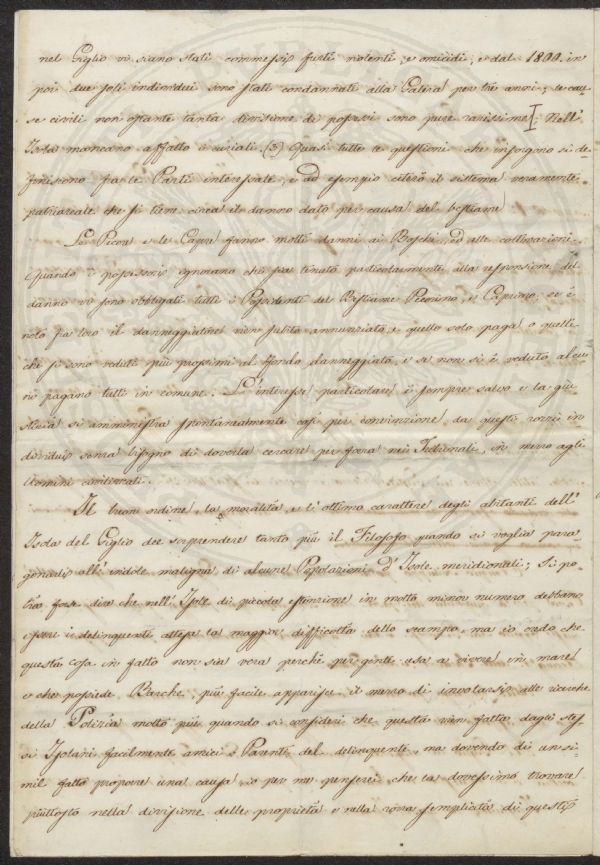 nel Giglio vi siano stati commessi furti violenti, e omicidi, e dal 1800. in
poi due soli individui sono stati condannati alla Galera per tre anni; le cau-
se civili non ostante tanta divisione di possessi sono pure rarissime; Nell'
Isola mancano affatto i curiali. (3) Quasi tutte le questioni che insorgono si de-
finiscono fra le Parti interessate, e ad esempio citerò il sistema veramente
patriarcale che si tiene circa il danno dato per causa del bestiame
Le Pecore e le Capre fanno molti danni ai Boschi, ed alle coltivazioni.
Quando i possessori ignorano chi sia tenuto particolarmente alla refensione del
danno vi sono obbligati tutti i Possidenti del Bestiame Pecorino, e Caprino. se è
noto fra loro il danneggiatore vien subito annunziato, e quello solo paga o quelli
che si sono veduti più prossimi al fondo danneggiato, e se non si è veduto alcu
no pagano tutti in comune. L'interesse particolare è sempre salvo e la giu-
stizia si amministra spontaneamente così per convinzione da questi rozzi in
dividui senza bisogno di doverla cercare per forza nei Tribunali, in mezzo agli
Uomini civilizzati.
Il buon ordine, la moralità, e l'ottimo carattere degli abitanti dell'
Isola del Giglio dee sorprendere tanto più il Filosofo quando si voglia para-
gonarsi all'indole maligna di alcune Popolazioni d'Isole meridionali; Si po-
trà forse dire che nell'Isole di piccola estensione in molto minor numero debbano
essere i delinquenti attesa la maggior difficoltà dello scampo, ma io credo che
questa cosa in fatto non sia vera perchè per gente usa a vivere in mare
e che possiede Barche, più facile apparisce il mezzo di involarsi alle ricerche
della Polizia molto più quando si consideri che questa vien fatta dagli stes-
si Isolani facilmente amici e Parenti del delinquente, ma dovendo di un si-
mil fatto proporre una causa, io per me penserei che la dovessimo trovare
piuttosto nella divisione delle proprietà e nella rozza semplicità di questi